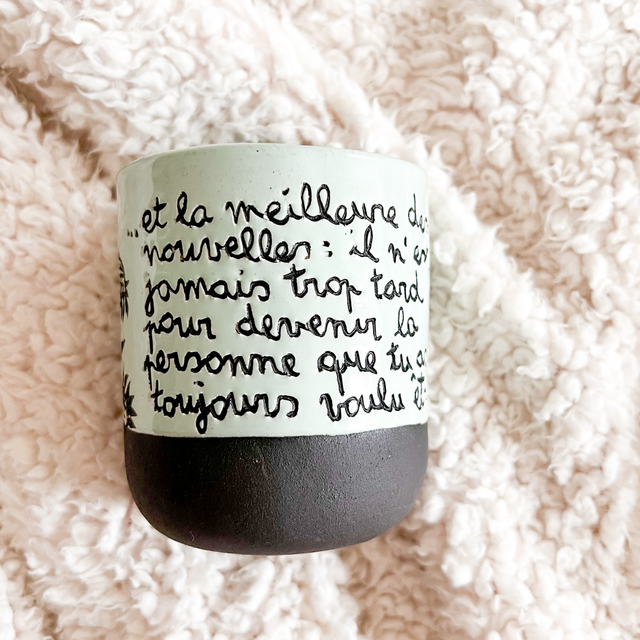 "et la meilleure de
nouvelles: il n'es
jamais trop tard
pour devenir la
personne que tu a
toujours voulu êt